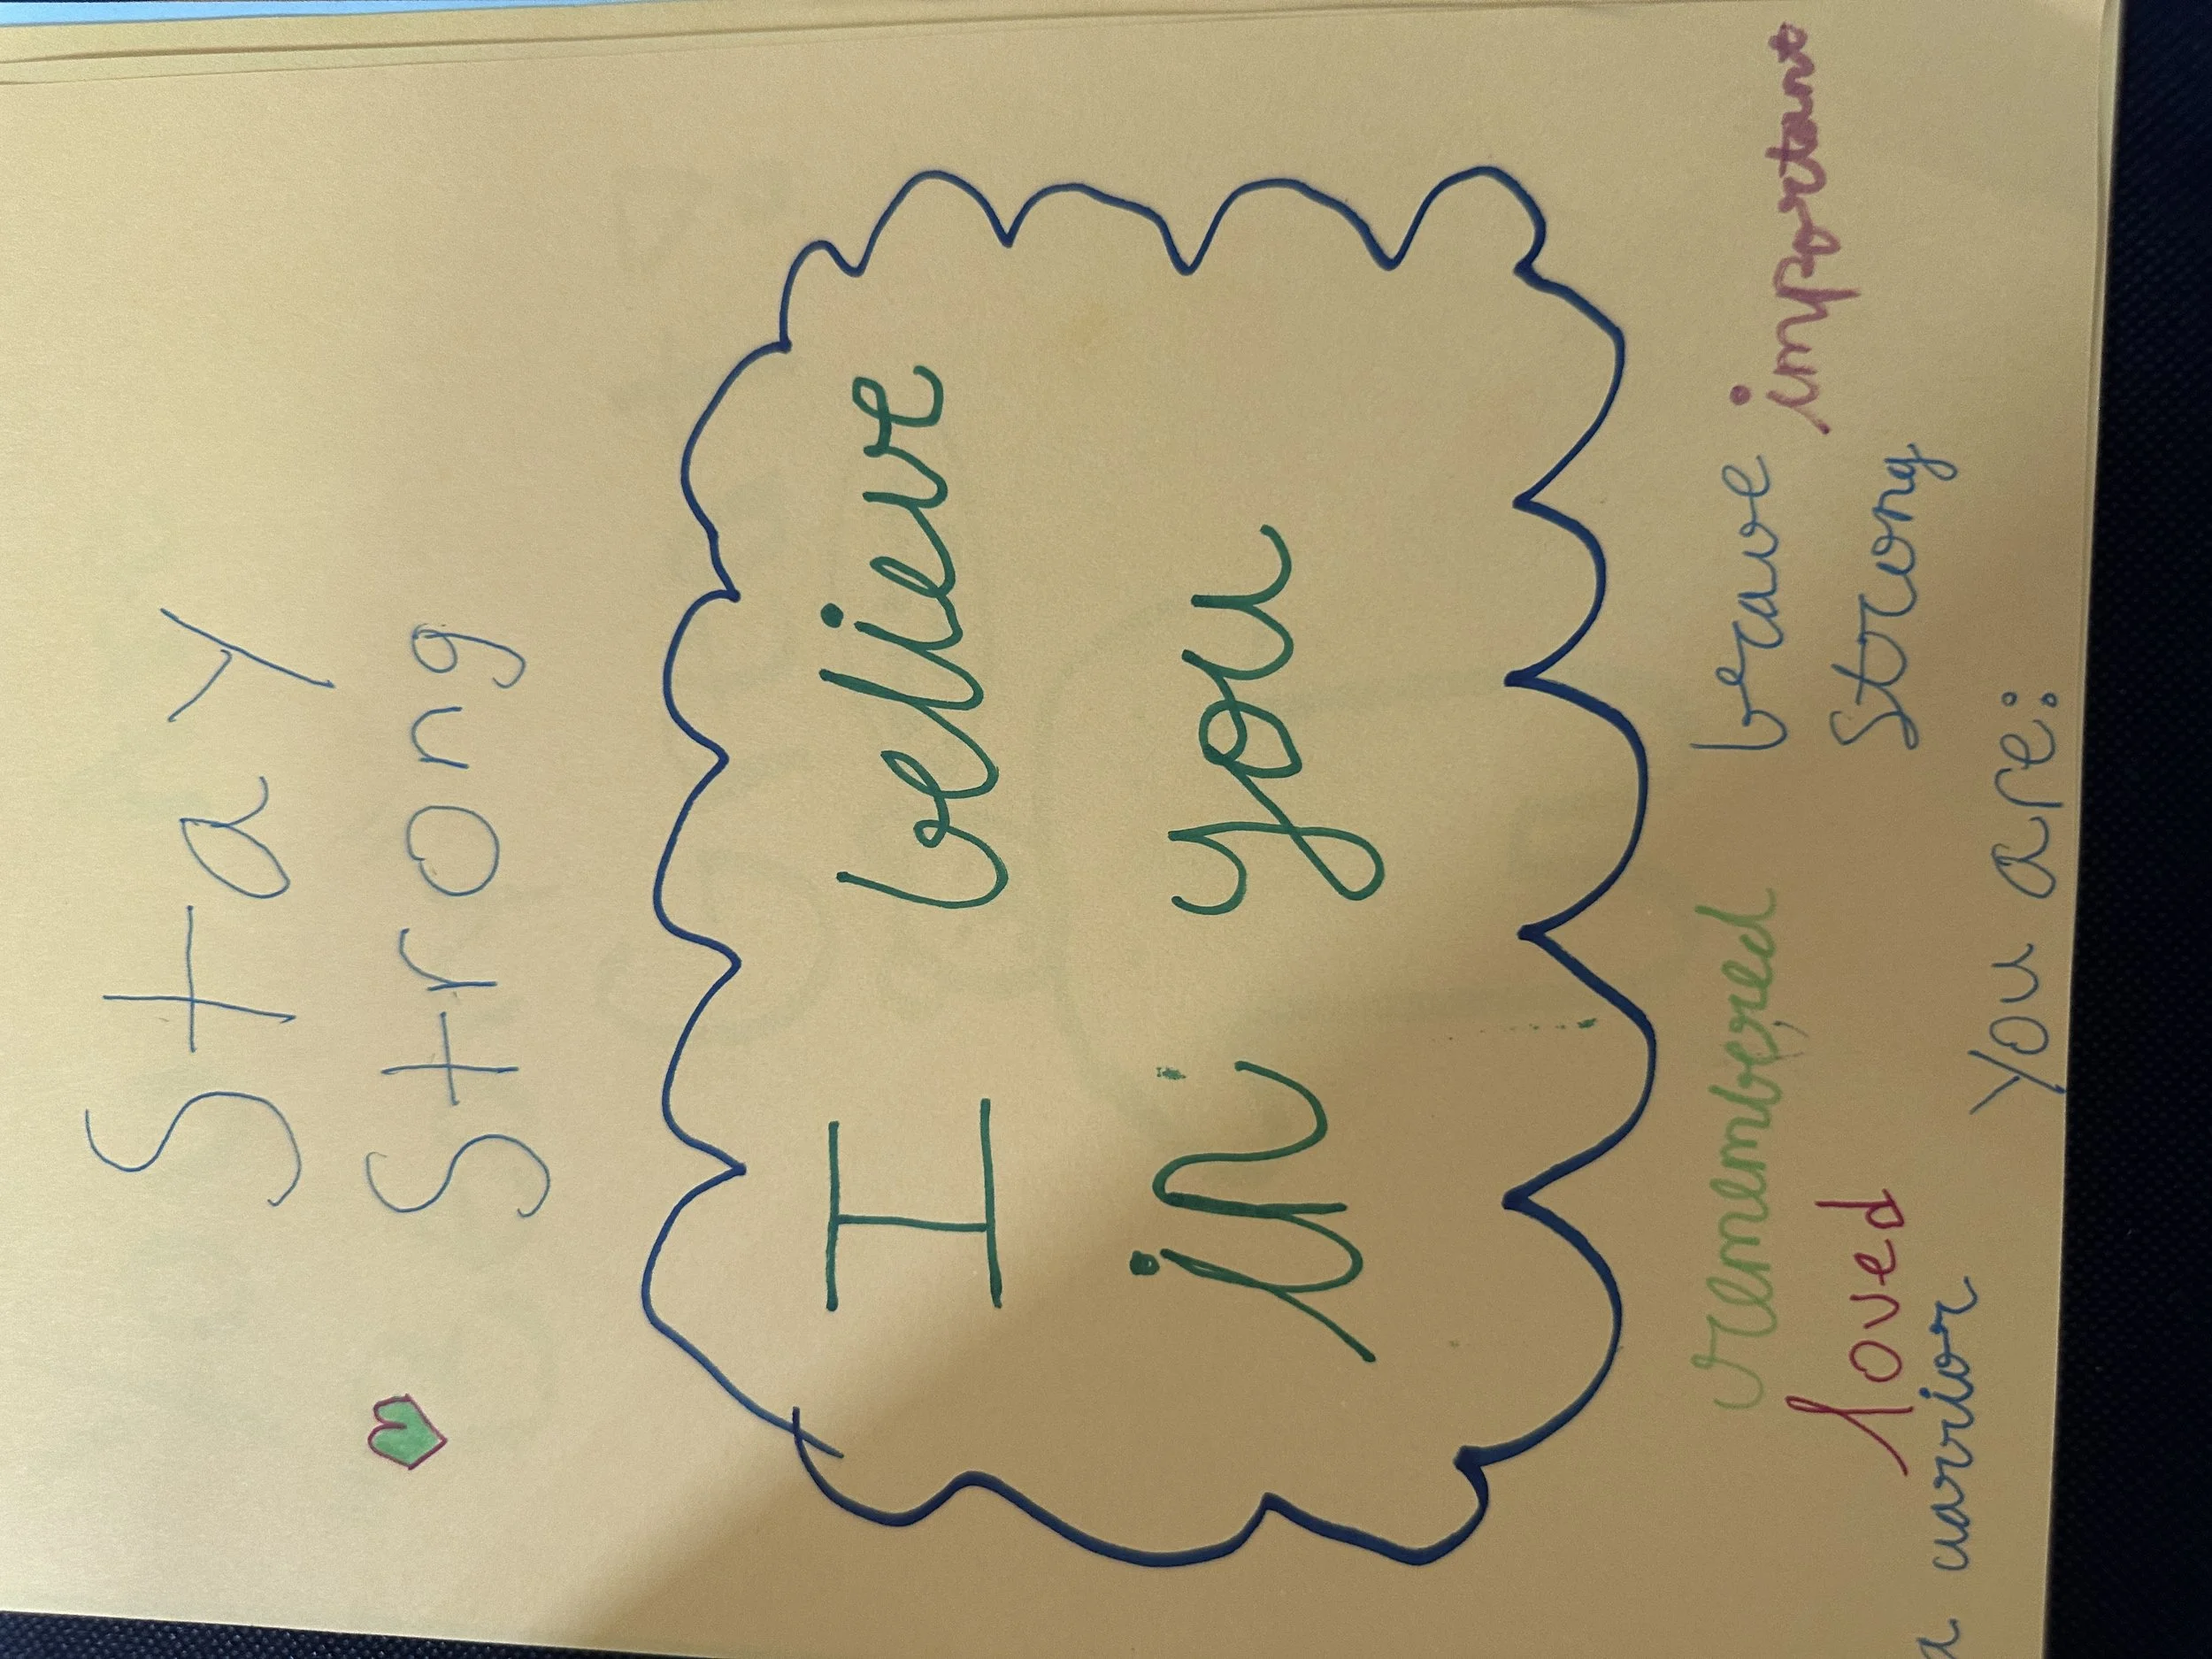 Stay
Strong
I believe
in you
remembered brave important
loved strong
a warrior
You are: